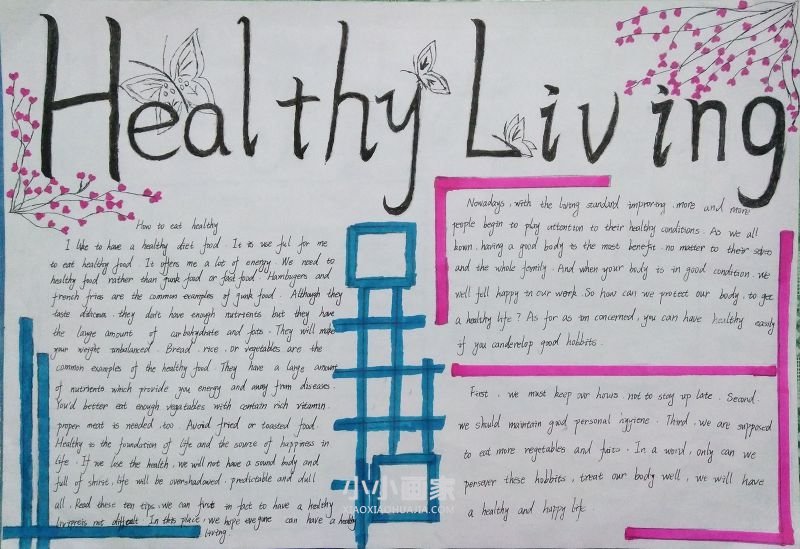 Healthy Living
How to eat healthy
I like to have a healthy diet food. It is use ful for me
to eat healthy food. It offers me a lot of energy. We need to
healthy food rather than junk food or fast food. Hamburgers and
french fries are the common examples of junk food. Although they
taste delicious. they don't have enough nutrients but they have
the large amount of carbohydrate and fats. They will make
your weight unbalanced. Bread. rice. or vegetables are the
common examples of the healthy food. They have a large amount
of nutrients which provide you energy and away from diseases.
You'd better eat enough vegatables with contain rich vitamin.
proper meat is needed too. Avoid fried or toasted food.
Healthy is the foundation of life and the source of happiness in
life. If we lose the health, we will not have a sound body and
full of shirst, life will be overshadowed. predictable and dull
all. Read these ten tips, we can first in fact to have a healthy
is not difficult. In this place, we hope everyone can have a healthy
living.
Nowadays, with the living standard improving, more and more
people begin to play attention to their healthy conditions. As we all
known, having a good body is the most benefit. no matter to their selves
and the whole family. And when your body is in good condition. we
well fell happy in our work. So how can we protect our body, to get
a healthy life? As for as im concerned, you can have healthy easily
if you canderelop good hobbits.
First, we must keep our hours. not to stay up late. Second.
we should maintain good personal hygiene. Third, we are supposed
to eat more vegetables and fuits. In a word, only can we
persever these hobbits, treat our body well, we will have
a healthy and happy life.
小小画家
XIAOXIAOHUAJIA.COM